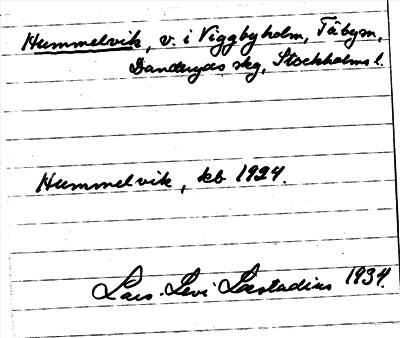 Hummelvik, v. i Viggbyholm, Täby sn,
Danderyds skg, Stockholms l.
Hummelvik, kb 1924.
Lars-Levi Læstadius 1934.